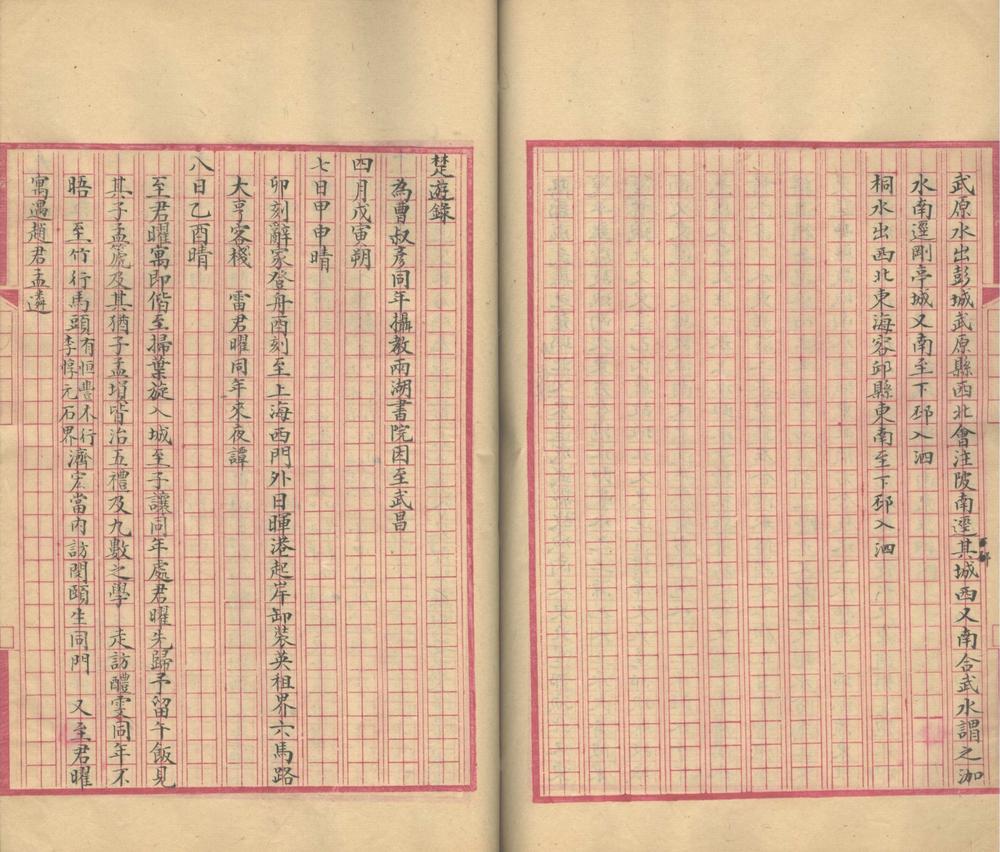 武原水出彭城武原縣西北會注陂南逕其城西又南合武水謂之泇
水南逕剛亭城又南至下邳入泗
桐水出西北東海容邱縣東南至下邳入泗
楚遊錄
為曹叔彥同年攝教兩湖書院因至武昌
四月戊寅朔
七日甲申晴
卯刻辭家登舟酉刻至上海西門外日暉港起岸卸裝英租界六馬路
大亨客棧 雷君曜同年來夜譚
八日乙酉晴
至君曜寓即偕至掃葉旋入城至子讓同年處君曜先歸予留午飯見
其子孟箎及其猶子孟塤皆治五禮及九數之學 走訪醴雯同年不
晤 至竹行馬頭有恒豐木行李惇元石界濟宏當內訪閔頤生同門 又至君曜
寓遇趙君孟遴